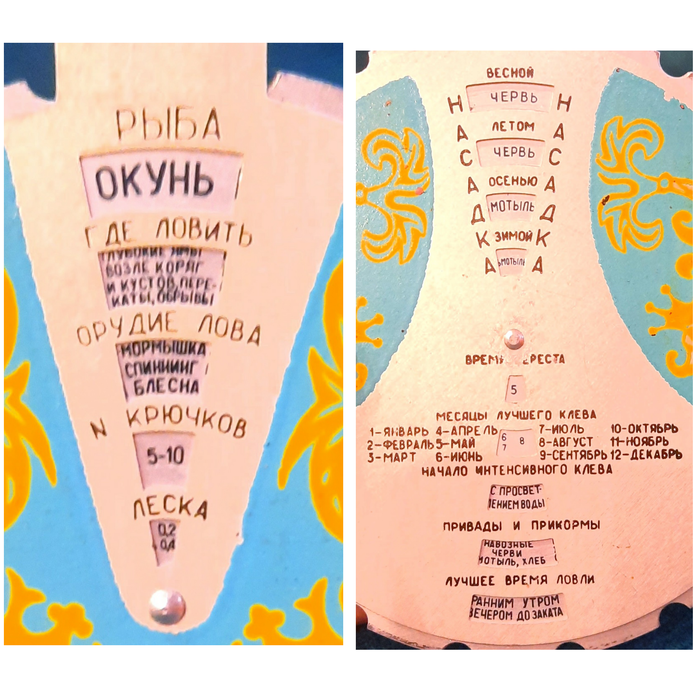 РЫБА
ОКУНЬ
ГДЕ ЛОВИТЬ
ГЛУБОКИЕ ЯМЫ
ВОЗЛЕ КОРЯГ
И КУСТОВ, ПЕРЕ-
КАТЫ, ОБРЫВЫ
ОРУДИЕ ЛОВА
МОРМЫШКА
СПИННИНГ
БЛЕСНА
N КРЮЧКОВ
5-10
ЛЕСКА
0,2
0,4
НАСАДКА
ВЕСНОЙ
ЧЕРВЬ
ЛЕТОМ
ЧЕРВЬ
ОСЕНЬЮ
МОТЫЛЬ
ЗИМОЙ
МОТЫЛЬ
НАСАДКА
ВРЕМЯ НЕРЕСТА
5
МЕСЯЦЫ ЛУЧШЕГО КЛЕВА
1-ЯНВАРЬ 4-АПРЕЛЬ 6 8 7-ИЮЛЬ 10-ОКТЯБРЬ
2-ФЕВРАЛЬ 5-МАЙ 7 8-АВГУСТ 11-НОЯБРЬ
3-МАРТ 6-ИЮНЬ 9-СЕНТЯБРЬ 12-ДЕКАБРЬ
НАЧАЛО ИНТЕНСИВНОГО КЛЕВА
С ПРОСВЕТ-
ЛЕНИЕМ ВОДЫ
ПРИВАДЫ И ПРИКОРМЫ
НАВОЗНЫЕ
ЧЕРВИ
МОТЫЛЬ, ХЛЕБ
ЛУЧШЕЕ ВРЕМЯ ЛОВЛИ
РАННИМ УТРОМ
ВЕЧЕРОМ ДО ЗАКАТА